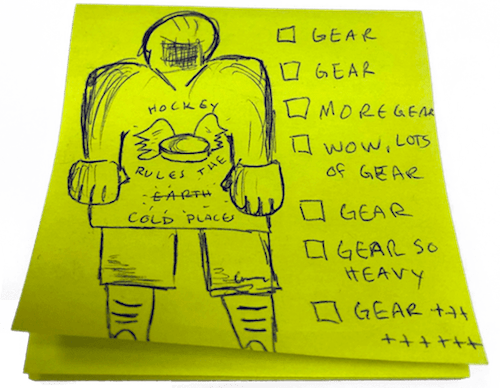 HOCKEY
RULES THE
EARTH
COLD PLACES
GEAR
GEAR
MORE GEAR
WOW, LOTS
OF GEAR
GEAR
GEAR SO
HEAVY
GEAR +++
++++++